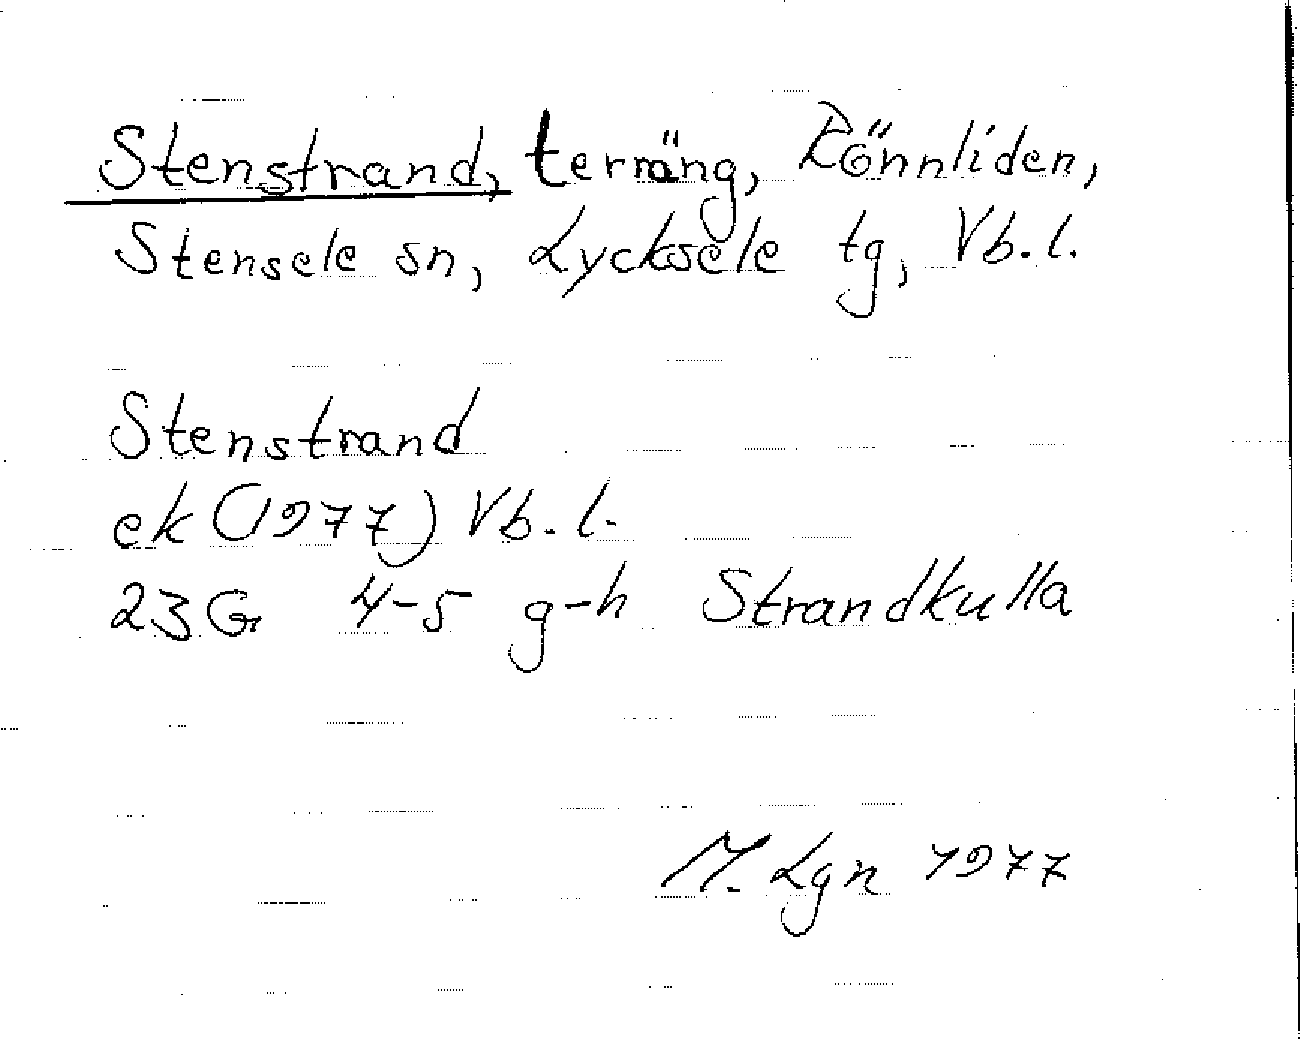 Stenstrand, terräng, Rönnliden,
Stensele sn, Lycksele tg, Vb. l.
Stenstrand
ek (1977) Vb. l.
23G 4-5 g-h Strandkulla
M. Lgn 1977